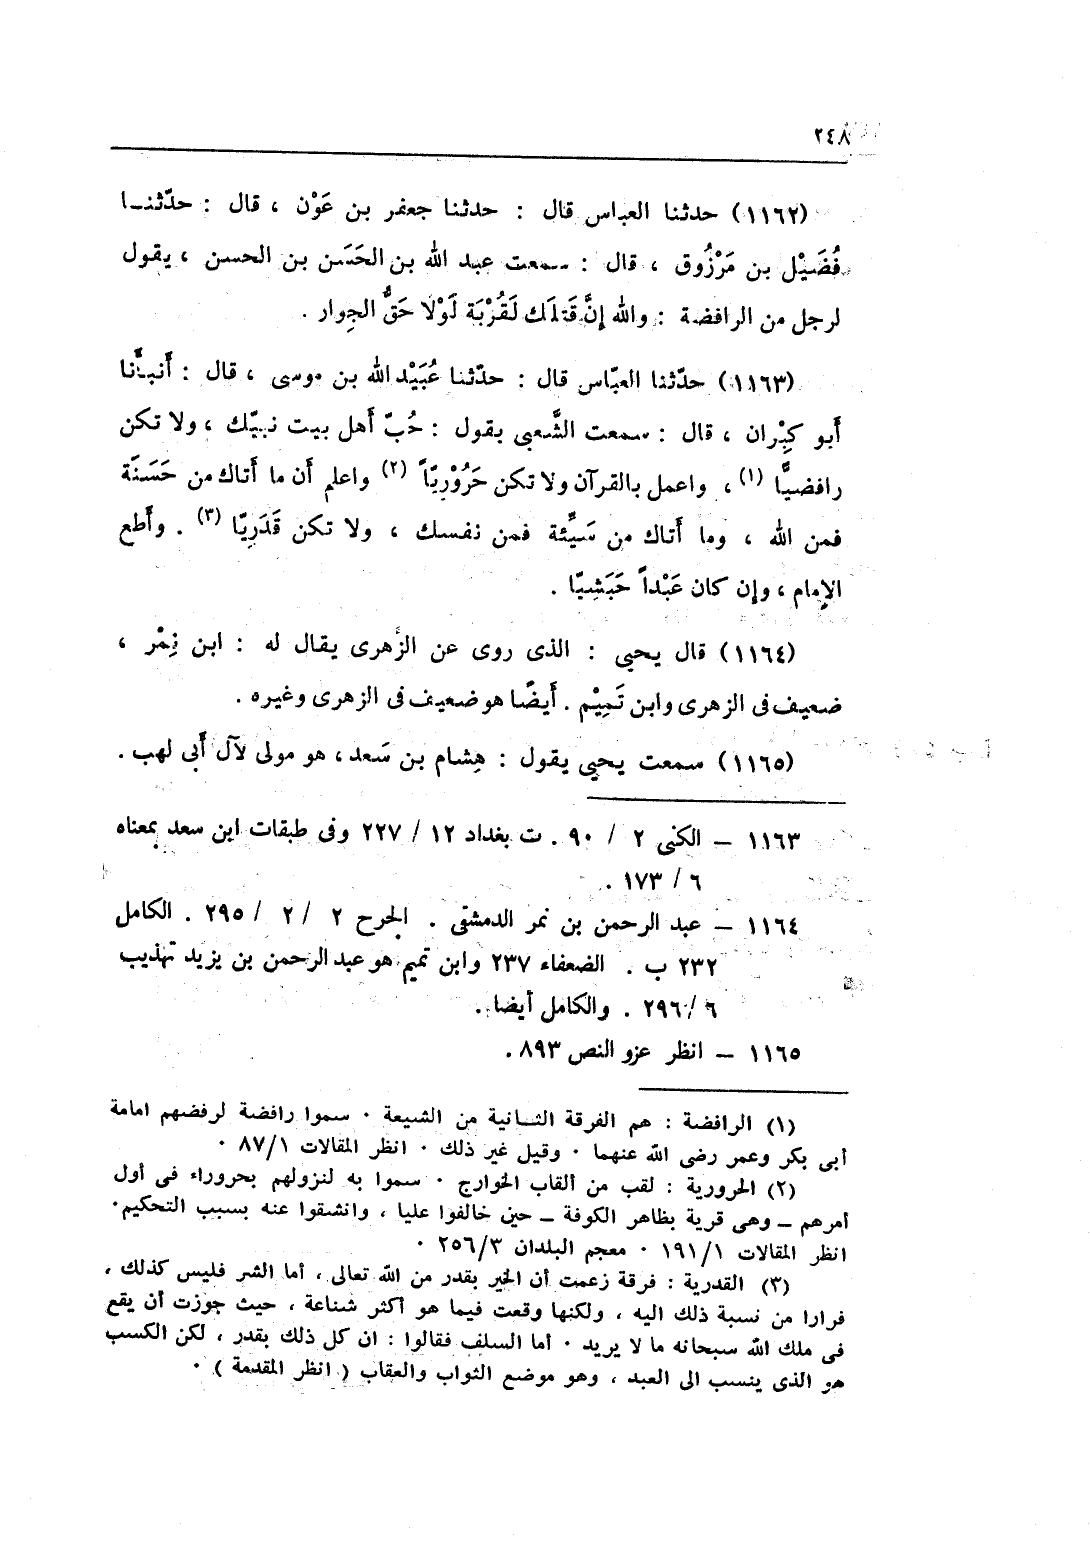 ٢٤٨
(١١٦٢) حدثنا العباس قال : حدثنا جعفر بن عَوْن ، قال : حدّثنا
فُضَيْل بن مَرْزُوق ، قال : سمعت عبد الله بن الحَسَن بن الحسن ، يقول
لرجل من الرافضة : والله إنَّ قَتلك لَقُرْبَة لَوْلا حَقُّ الجِوار .
(١١٦٣) حدّثنا العبّاس قال : حدّثنا عُبَيْد الله بن موسى ، قال : أَنبأَنا
أبو كِبْران ، قال : سمعت الشَّعبى يقول : حُبّ أَهل بيت نبيّك ، ولا تكن
رافضيًّا (١) ، واعمل بالقرآن ولا تكن حَرُوْرِيّاً (٢) واعلم أَن ما أَتاك من حَسَنَة
فمن الله ، وما أَتاك من سَيِّئة فمن نفسك ، ولا تكن قَدَرِيّا (٣) . وأَطع
الإمام ، وإن كان عَبْداً حَبَشِيّا .
(١١٦٤) قال يحيى : الذى روى عن الزُّهرى يقال له : ابن نِمْر ،
ضعيف فى الزهرى وابن تَمِيْم . أَيضًا هو ضعيف فى الزهرى وغيره .
(١١٦٥) سمعت يحيى يقول : هِشام بن سَعد ، هو مولى لآل أَبى لهب .
١١٦٣ – الكنى ٢ / ٩٠ . ت بغداد ١٢ / ٢٢٧ وفى طبقات ابن سعد بمعناه
٦ / ١٧٣ .
١١٦٤ – عبد الرحمن بن نمر الدمشقى . الجرح ٢ / ٢ / ٢٩٥ . الكامل
٢٣٢ ب . الضعفاء ٢٣٧ وابن تميم هو عبد الرحمن بن يزيد تهذيب
٦ / ٢٩٦ . والكامل أيضا .
١١٦٥ – انظر عزو النص ٨٩٣ .
(١) الرافضة : هم الفرقة الثانية من الشيعة · سموا رافضة لرفضهم امامة
أبى بكر وعمر رضى الله عنهما · وقيل غير ذلك · انظر المقالات ٨٧/١ ·
(٢) الحرورية : لقب من ألقاب الخوارج · سموا به لنزولهم بحروراء فى أول
أمرهم – وهى قرية بظاهر الكوفة – حين خالفوا عليا ، وانشقوا عنه بسبب التحكيم ·
انظر المقالات ١٩١/١ · معجم البلدان ٢٥٦/٣ ·
(٣) القدرية : فرقة زعمت أن الخير بقدر من الله تعالى ، أما الشر فليس كذلك ،
فرارا من نسبة ذلك اليه ، ولكنها وقعت فيما هو أكثر شناعة ، حيث جوزت أن يقع
فى ملك الله سبحانه ما لا يريد · أما السلف فقالوا : ان كل ذلك بقدر ، لكن الكسب
هو الذى ينسب الى العبد ، وهو موضع الثواب والعقاب ( انظر المقدمة ) ·